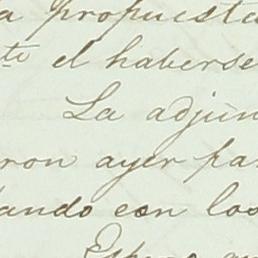 a propuesta
te el haberse
La adjun
ron ayer pa
ando con los
Espero